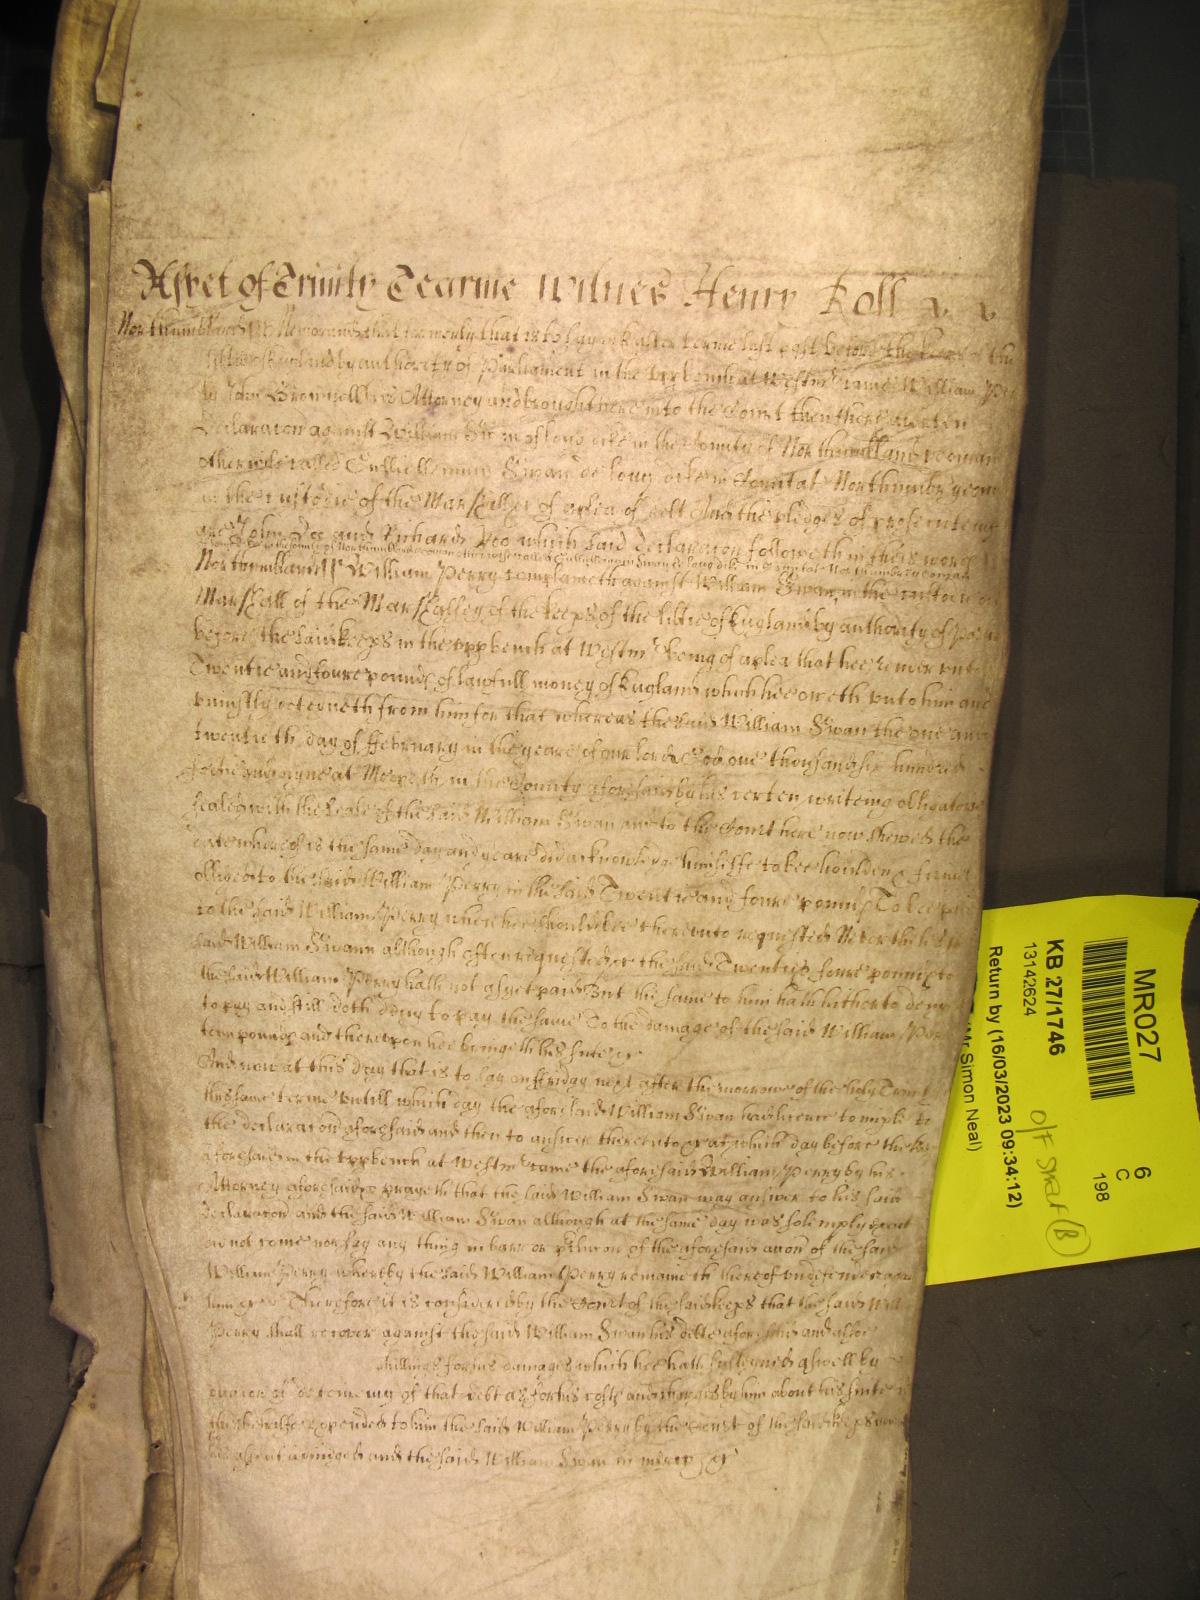 As yet of Trinity Tearme Witnes Henry Roll
Northumbland ss Memorand that formerly that is to say in Easter terme last past before the keeps of the
libtie of England by authority of Parliament in the vpp bench at Westmr came William Per
by John Brownell his Attorney and brought here into the Court then there a certen
Declaracon against William Swan of long in the County of Northumbland yeoman
otherwise called Willielmum Swan de long in Comitat Northumbr yeom
in the custodie of the Marshall &c of a plea of debt And the pledges of prosecuteing
are John Doe and Richard Roo which said declaracon followeth in theis words
of long in the County of Northumbland yeoman otherwise called Willielmum Swan de long in Comitat Northumbr yeoman
Northumbland ss William Perry complaineth against William Swan in the custodie of
Marshall of the Marshalsey of the keeps of the libtie of England by authority of Par
before the said keeps in the vpp bench at Westmr being of a plea that hee render vnto
Twentie and foure pounds of lawfull money of England which hee oweth vnto him and
vniustly deteyneth from him for that whereas the said William Swan the one and
twentieth day of ffebruary in the yeare of our lord God one thousand six hundred
fortie and nyne at Morpeth in the County aforesaid by his certen writeing obligatorie
sealed with the seale of the said William Swan and to the Court here now shewed the
date whereof is the same day and yeare did acknowledge himselfe to bee houlden & firmel
obliged to the said William Perry in the said Twentie and foure pounds To bee paid
to the said William Perry when hee should bee therevnto requested Neverthelesse
said William Swann although often requested &c the said Twentie & foure pounds to
the said William Perry hath not as yet paid But the same to him hath hitherto denyed
to pay and still doth deny to pay the same To the damage of the said William Per
tenn pounds and therevpon hee bringeth his suite &c
And now at this day that is to say on ffriday next after the morrow of the holy Trinit
this same terme vntill which day the aforesaid William Swan had licence to imple to
the declaracon aforesaid and then to answere therevnto &c at which day before the kee
aforesaid in the vpp bench at Westmr came the aforesaid William Perry by his
Attorney aforesaid & prayeth that the said William Swan may answer to his said
declaracon and the said William Swan although at the same day was solemply exact
did not come nor say any thing in barr or pclusion of the aforesaid accon of the said
William Perry whereby the said William Perry remaineth thereof vndefended agai
him &c Therefore it is considered by the Court of the said keeps that the said Will
Perry shall recover against the said William Swan his debte aforesaid and alsoe
shillings for his damages which hee hath susteyned aswell by
occasion of deteineing of that debt as for his costs and charges by him about his suite
in this behalfe expended to him the said William Perry by the Court of the said keeps
his assent adiudged and the said William Swan in mercy &c
MR027
6
C
198
KB 27/1746
13142624
o/f STRAY (B)
Return by (16/03/2023 09:34:12)
Mr Simon Neal)